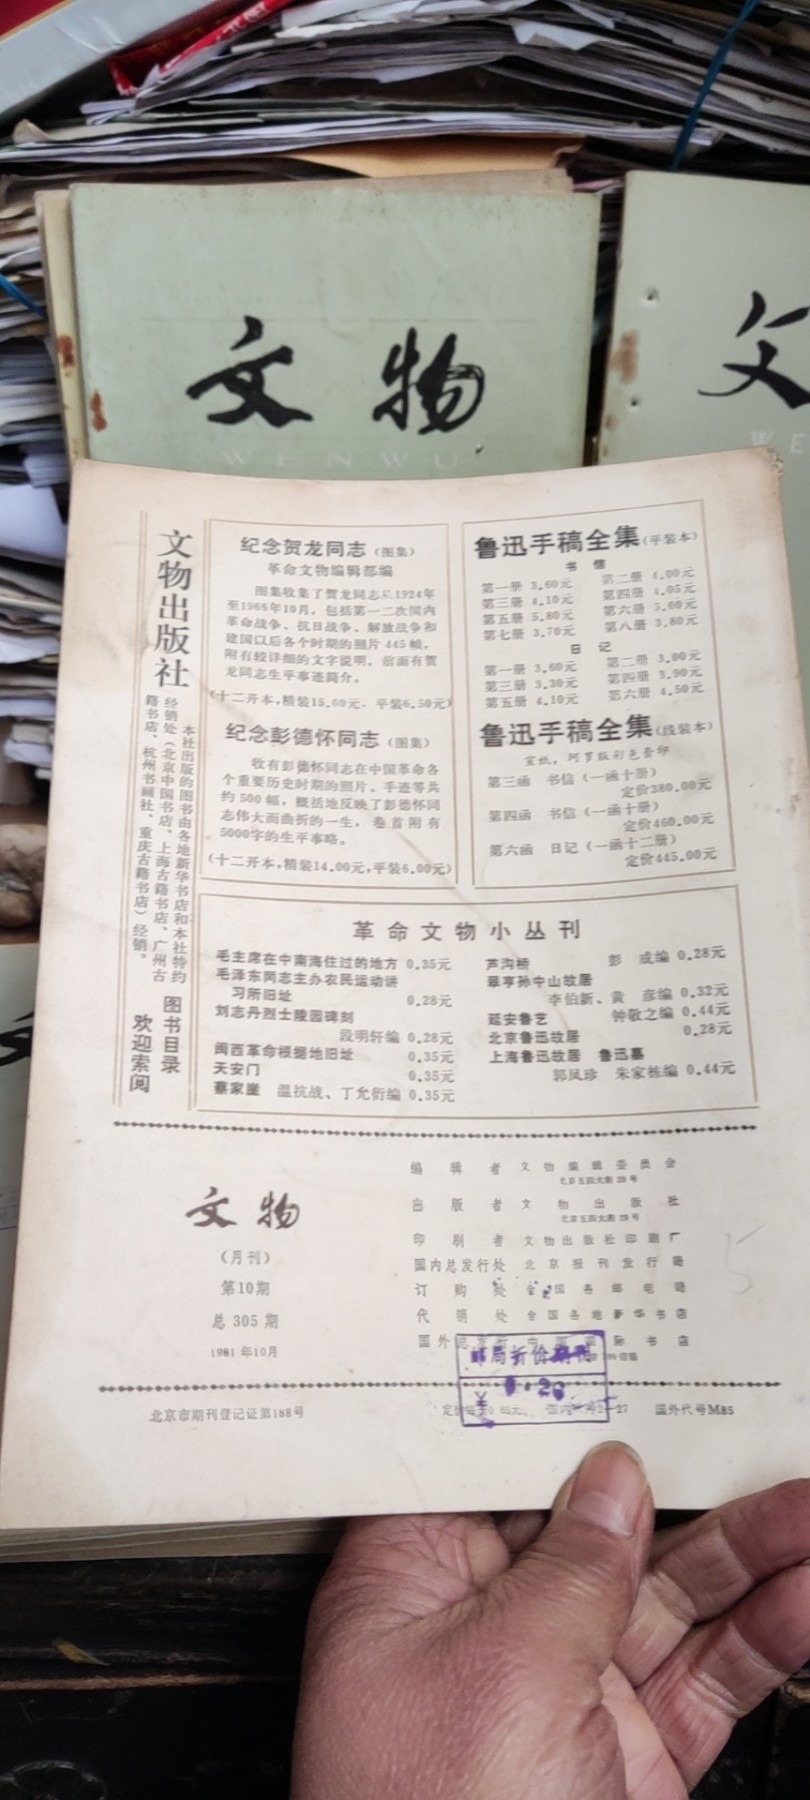 文物
WENWU
文
WE
文物出版社
本社出版的图书由各地新华书店和本社特约
经销处（北京中国书店、上海古籍书店、广州古
籍书店、杭州书画社、重庆古籍书店）经销。
图书目录
欢迎索阅
纪念贺龙同志（图集）
革命文物编辑部编
图集收集了贺龙同志从1924年
至1966年10月，包括第一二次国内
革命战争、抗日战争、解放战争和
建国以后各个时期的照片445幅，
附有较详细的文字说明，前面有贺
龙同志生平事迹简介。
(十二开本,精装15.00元，平装6.50元)
纪念彭德怀同志（图集）
收有彭德怀同志在中国革命各
个重要历史时期的照片、手迹等共
约500幅，概括地反映了彭德怀同
志伟大而曲折的一生，卷首附有
5000字的生平事略。
(十二开本,精装14.00元,平装6.00元)
鲁迅手稿全集(平装本)
书 信
第一册 3.60元 第二册 4.00元
第三册 4.10元 第四册 4.05元
第五册 5.80元 第六册 5.00元
第七册 3.70元 第八册 3.80元
日 记
第一册 3.60元 第二册 3.00元
第三册 3.30元 第四册 3.90元
第五册 4.10元 第六册 4.50元
鲁迅手稿全集(线装本)
宣纸，珂罗版彩色套印
第三函 书信（一函十册）
定价380.00元
第四函 书信（一函十册）
定价460.00元
第六函 日记（一函十二册）
定价445.00元
革命文物小丛刊
毛主席在中南海住过的地方 0.35元
毛泽东同志主办农民运动讲
习所旧址 0.28元
刘志丹烈士陵园碑刻
段明轩编 0.28元
闽西革命根据地旧址 0.35元
天安门 0.35元
蔡家崖 温抗战、丁允衍编 0.35元
芦沟桥 彭 成编 0.28元
翠亨孙中山故居
李伯新、黄 彦编 0.32元
延安鲁艺 钟敬之编 0.44元
北京鲁迅故居 0.28元
上海鲁迅故居 鲁迅墓
郭凤珍 朱家栋编 0.44元
文物
（月刊）
第10期
总305期
1981年10月
编辑者 文物编辑委员会
北京五四大街29号
出版者 文物出版社
北京五四大街29号
印刷者 文物出版社印刷厂
国内总发行处 北京报刊发行局
订购处 全国各邮电局
代销处 全国各地新华书店
国外总发行 中国国际书店
邮局折价期刊
￥ 0.20
北京市期刊登记证第188号
国外代号M85